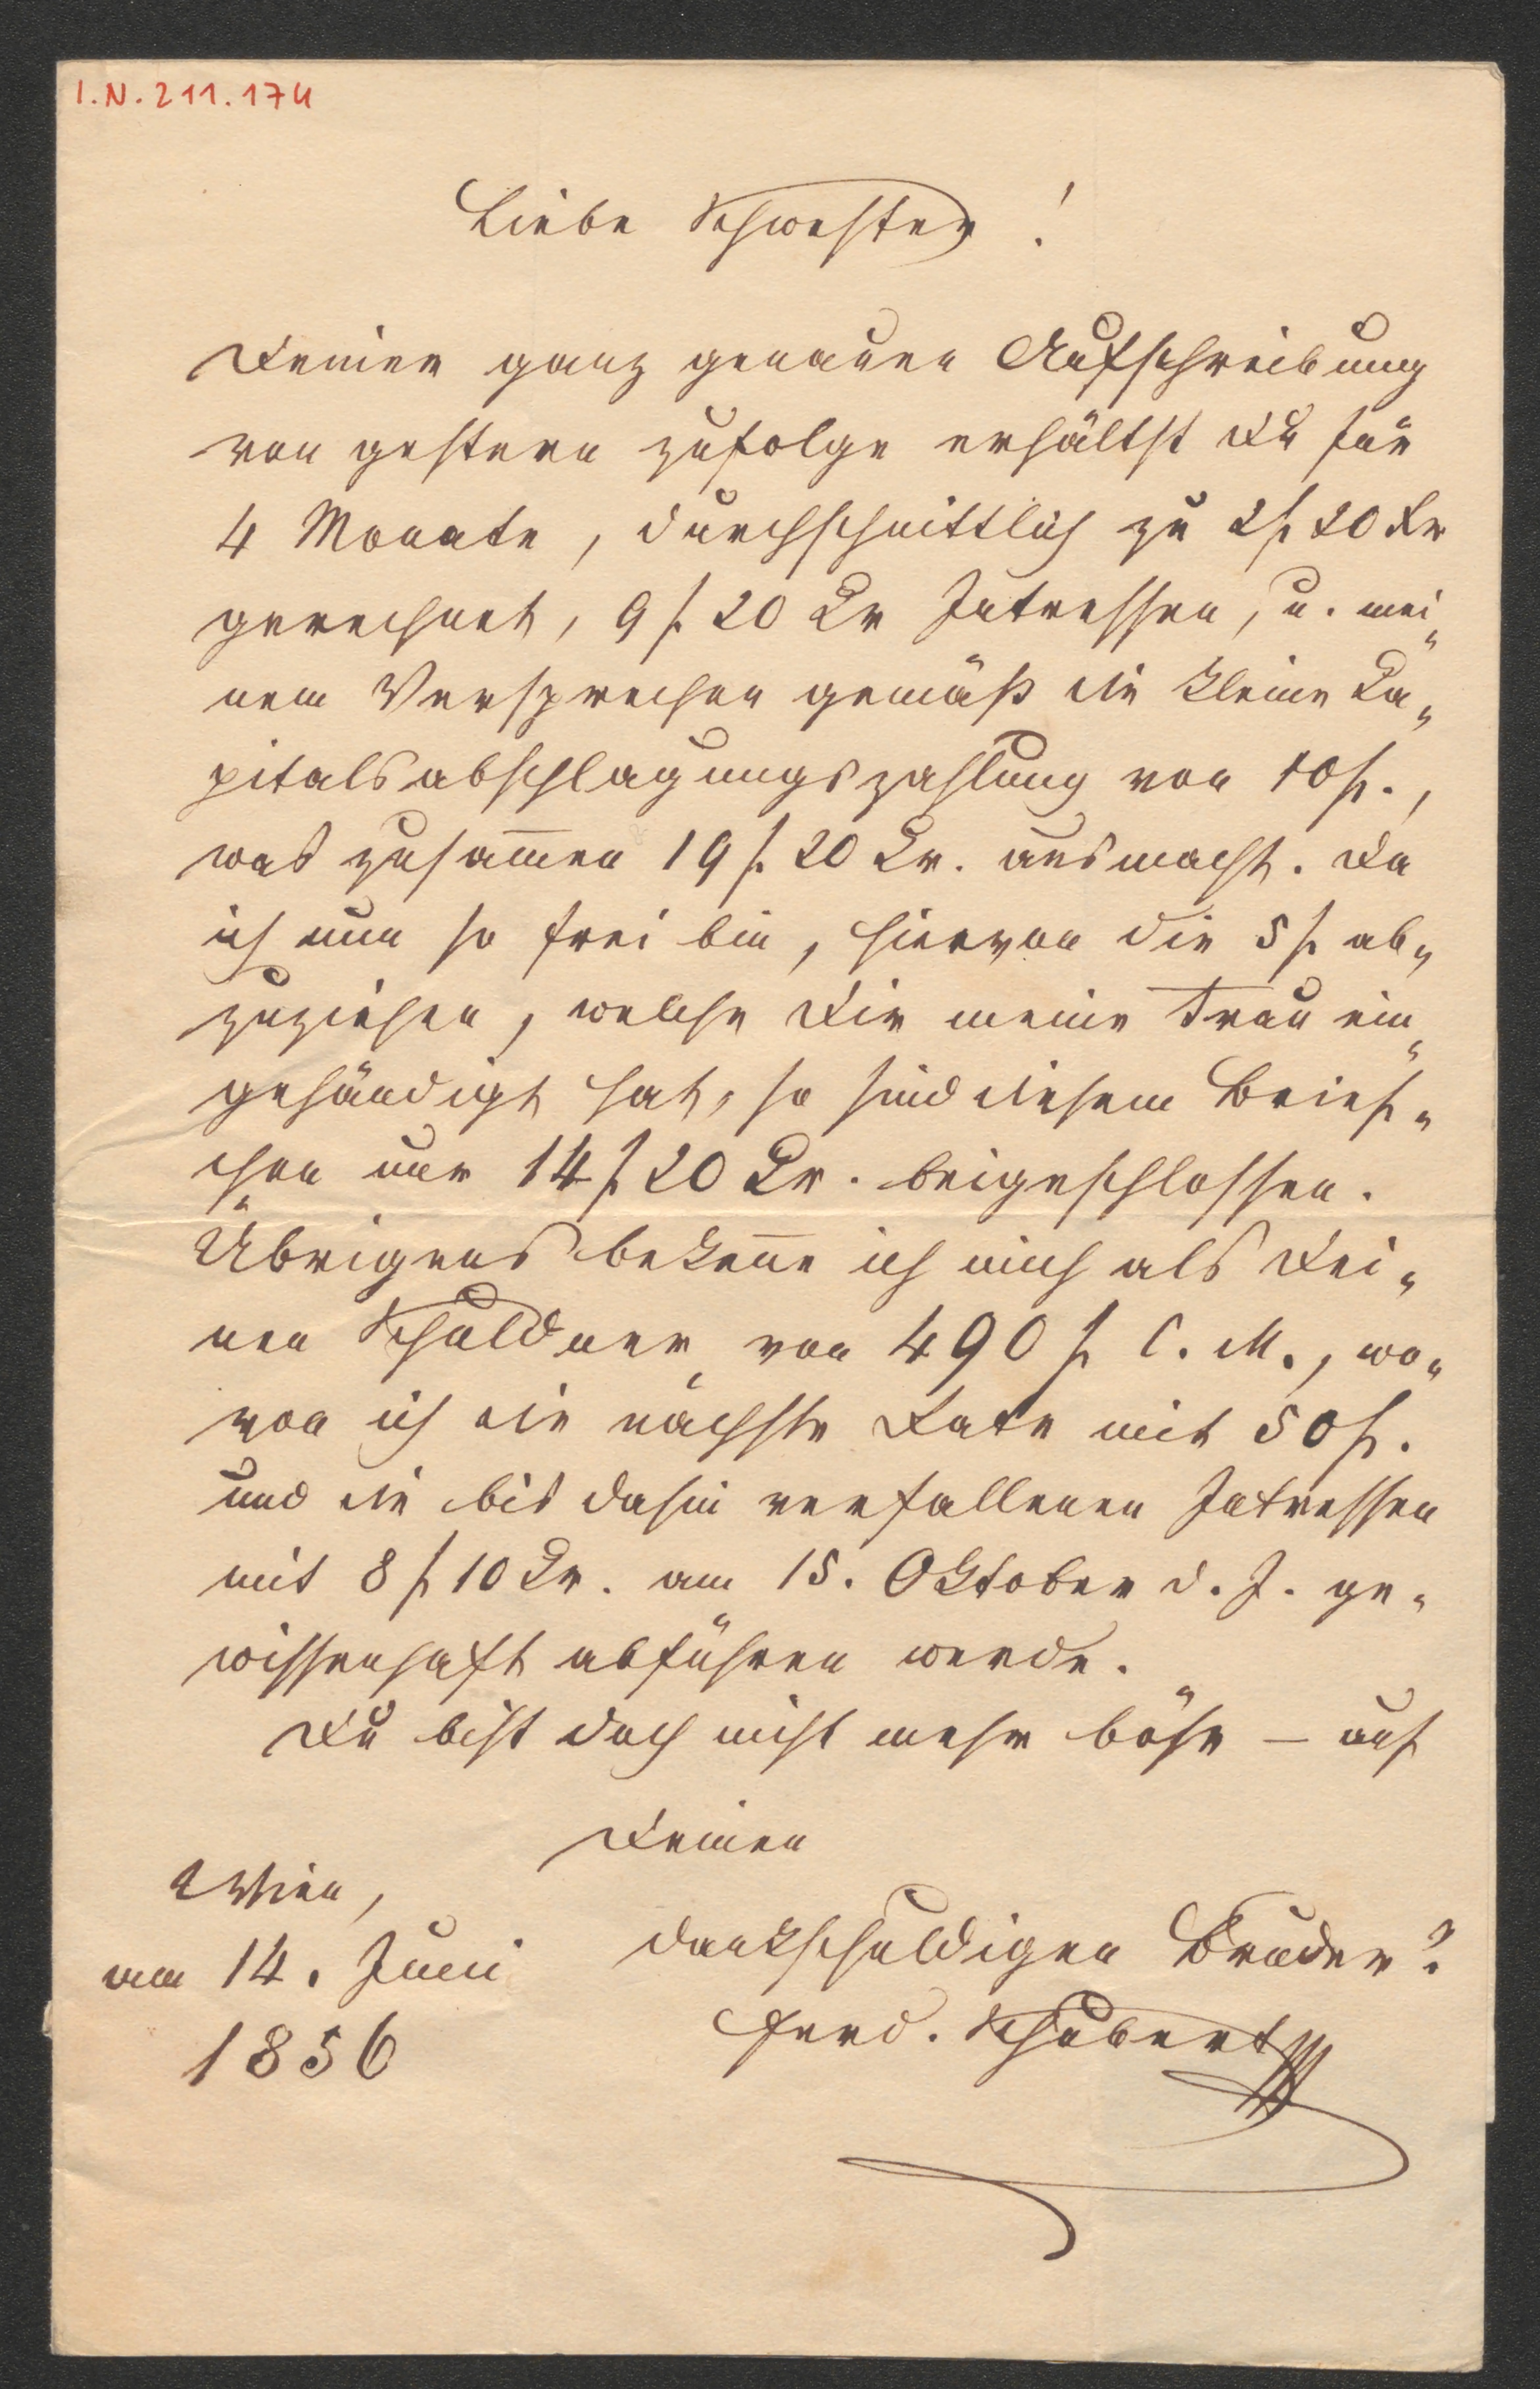 I.N. 211.174
Liebe Schwester!
Deiner ganz genauen Aufschreibung
von gestern zufolge erhältst Du für
4 Monate, durchschnittlich zu 2 f. 20 Kr
gerechnet, 9 f. 20 Kr Intressen, u. mei„
nem Versprechen gemäß die kleine Ka„
pitalsabschlagungszahlung von 10 f.,
was zusam̅en 19 f. 20 Kr. ausmacht. Da
ich nun so frei bin, hiervon die 5 f. ab„
zuziehen, welche Dir meine Frau ein„
gehändigt hat, so sind diesem Brief„
chen nur 14 f. 20 Kr. beigeschlossen.
Übrigens beken̅e ich mich als Dei„
nen Schuldner von 490 f. C. M., wo„
von ich die nächste Rate mit 50 f.
und die bis dahin verfallenen Intressen
mit 8 f. 10 Kr. am 15. Oktober d. J. ge„
wissenhaft abführen werde.
Du bist doch nicht mehr böse – auf
Deinen
dankschuldigen Bruder?
Ferd. Schubert
Wien,
am 14. Juni
1856